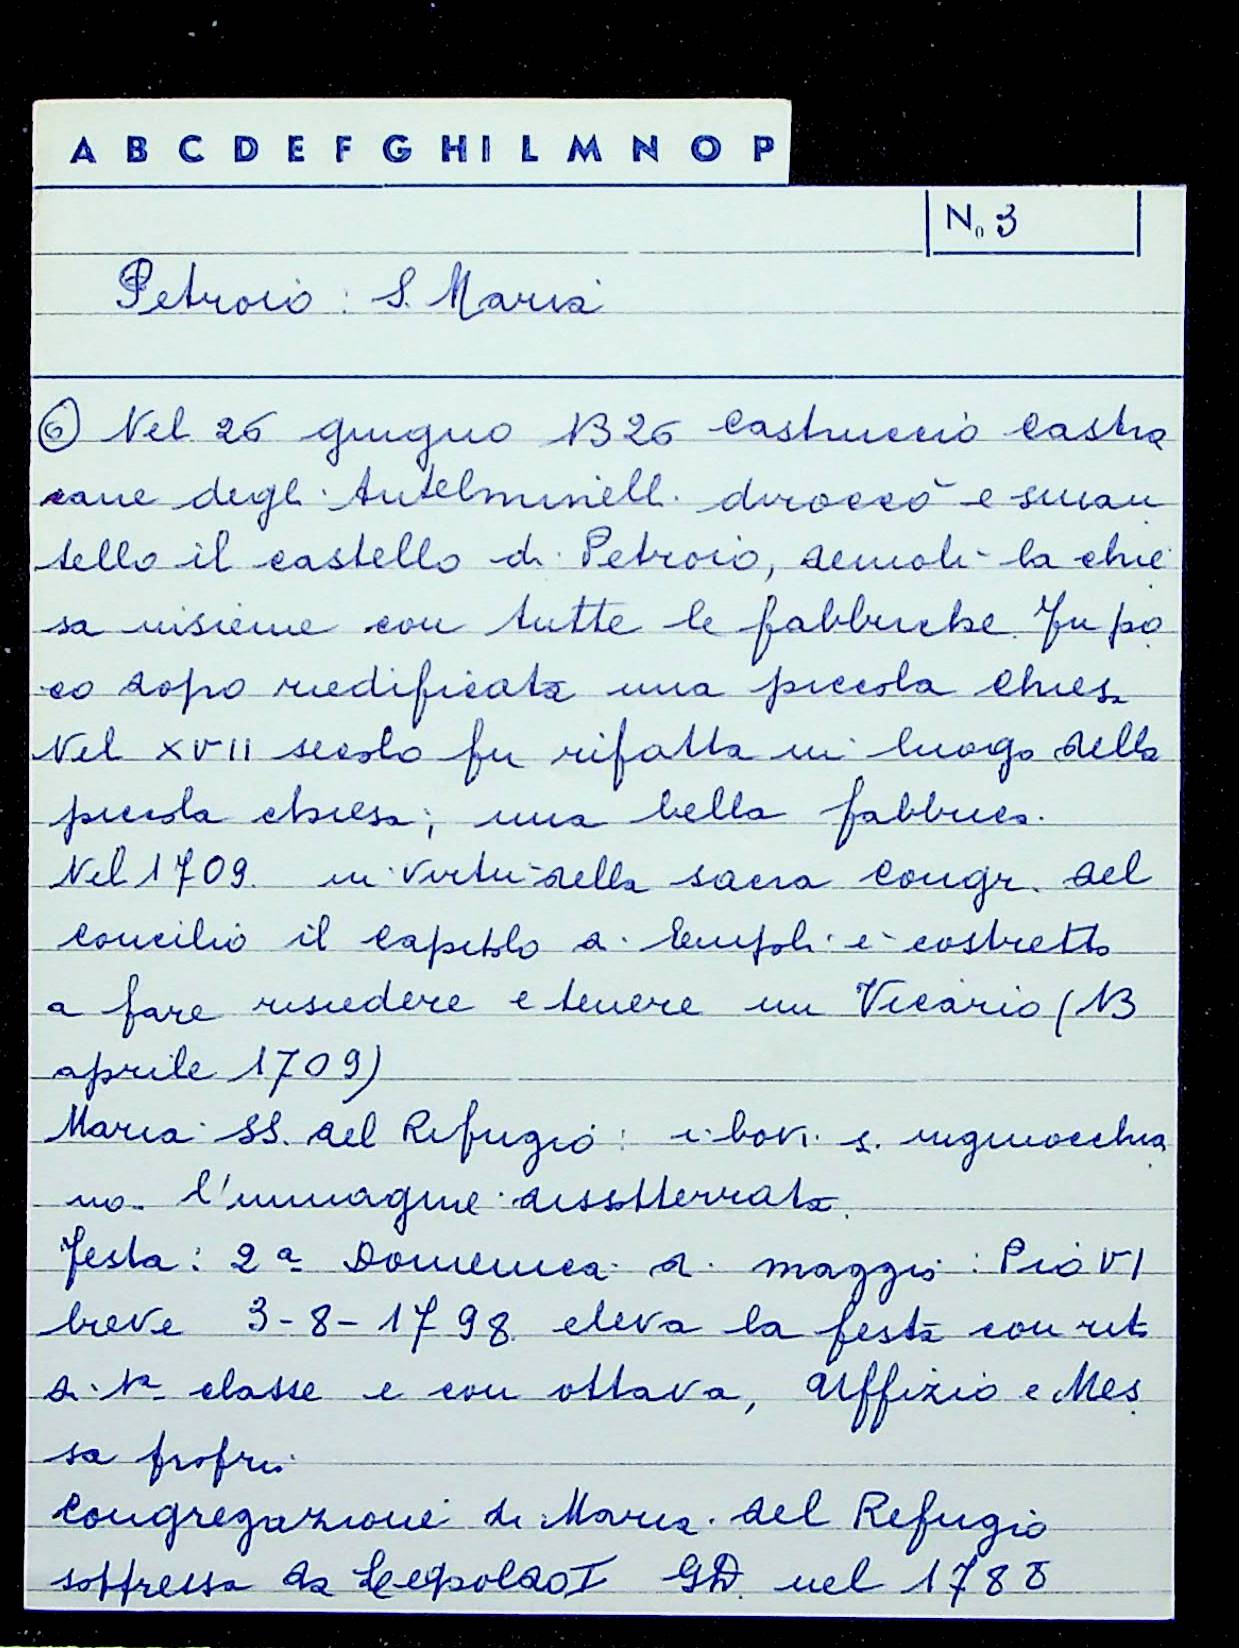 A B C D E F G H I L M N O P
N. 3
Petroio: S. Maria
⑥ Nel 26 giugno 1326 Castruccio Castra
cane degli Antelminelli diroccò e sman
tello il castello di Petroio, demolì la chie
sa insieme con tutte le fabbriche. Fu po
co dopo riedificata una piccola chiesa
Nel XVII secolo fu rifatta in luogo della
piccola chiesa; una bella fabbrica.
Nel 1709. in virtù della sacra Congr. del
concilio il Capitolo di Empoli è costretto
a fare risiedere e tenere un Vicario (13
aprile 1709)
Maria SS. del Refugio: i bovi si inginocchia
no. l'immagine dissotterrata.
Festa: 2ª Domenica di maggio: Pio VI
breve 3-8-1798 eleva la festa con rito
di 1ª classe e con ottava, Uffizio e Mes
sa propri
Congregazione di Maria del Refugio
soppressa da Leopoldo I GD. nel 1788